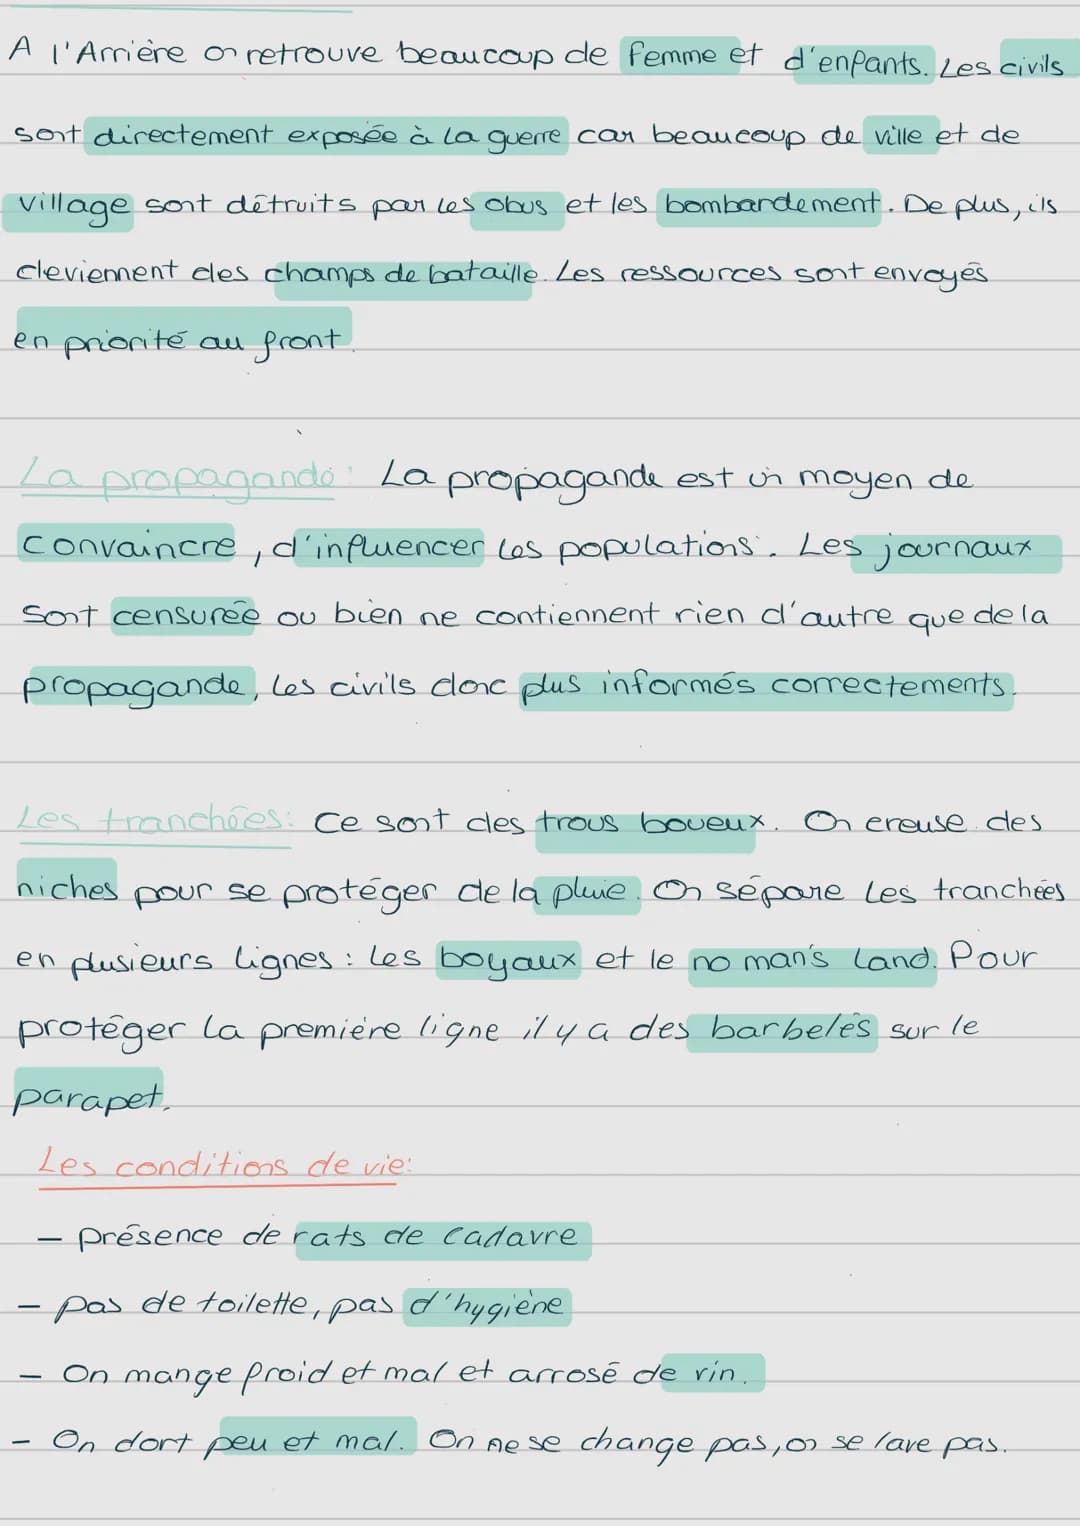 A l'Arrière on retrouve beaucoup de femme et d'enfants. Les civils
sont directement exposée à la guerre car beaucoup de ville et de
village sont détruits par les obus et les bombardement. De plus, ils
deviennent des champs de bataille. Les ressources sont envoyés
en priorité au front.
La propagande: La propagande est un moyen de
convaincre, d'influencer les populations. Les journaux
sont censurée ou bien ne contiennent rien d'autre que de la
propagande, les civils donc plus informés correctements.
Les tranchées: Ce sont des trous boueux. On creuse des
niches pour se protéger de la pluie. On sépare les tranchées
en plusieurs lignes: les boyaux et le no man's land. Pour
protéger la première ligne il y a des barbelés sur le
parapet.
Les conditions de vie:
- présence de rats de cadavre
- pas de toilette, pas d'hygiène
- On mange froid et mal et arrosé de vin.
- On dort peu et mal. On ne se change pas, on se lave pas.